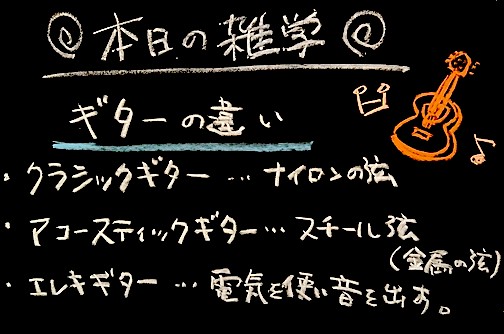 本日の雑学
ギターの違い
・クラシックギター…ナイロンの弦
・アコースティックギター…スチール弦
(金属の弦)
・エレキギター…電気を使い音を出す。